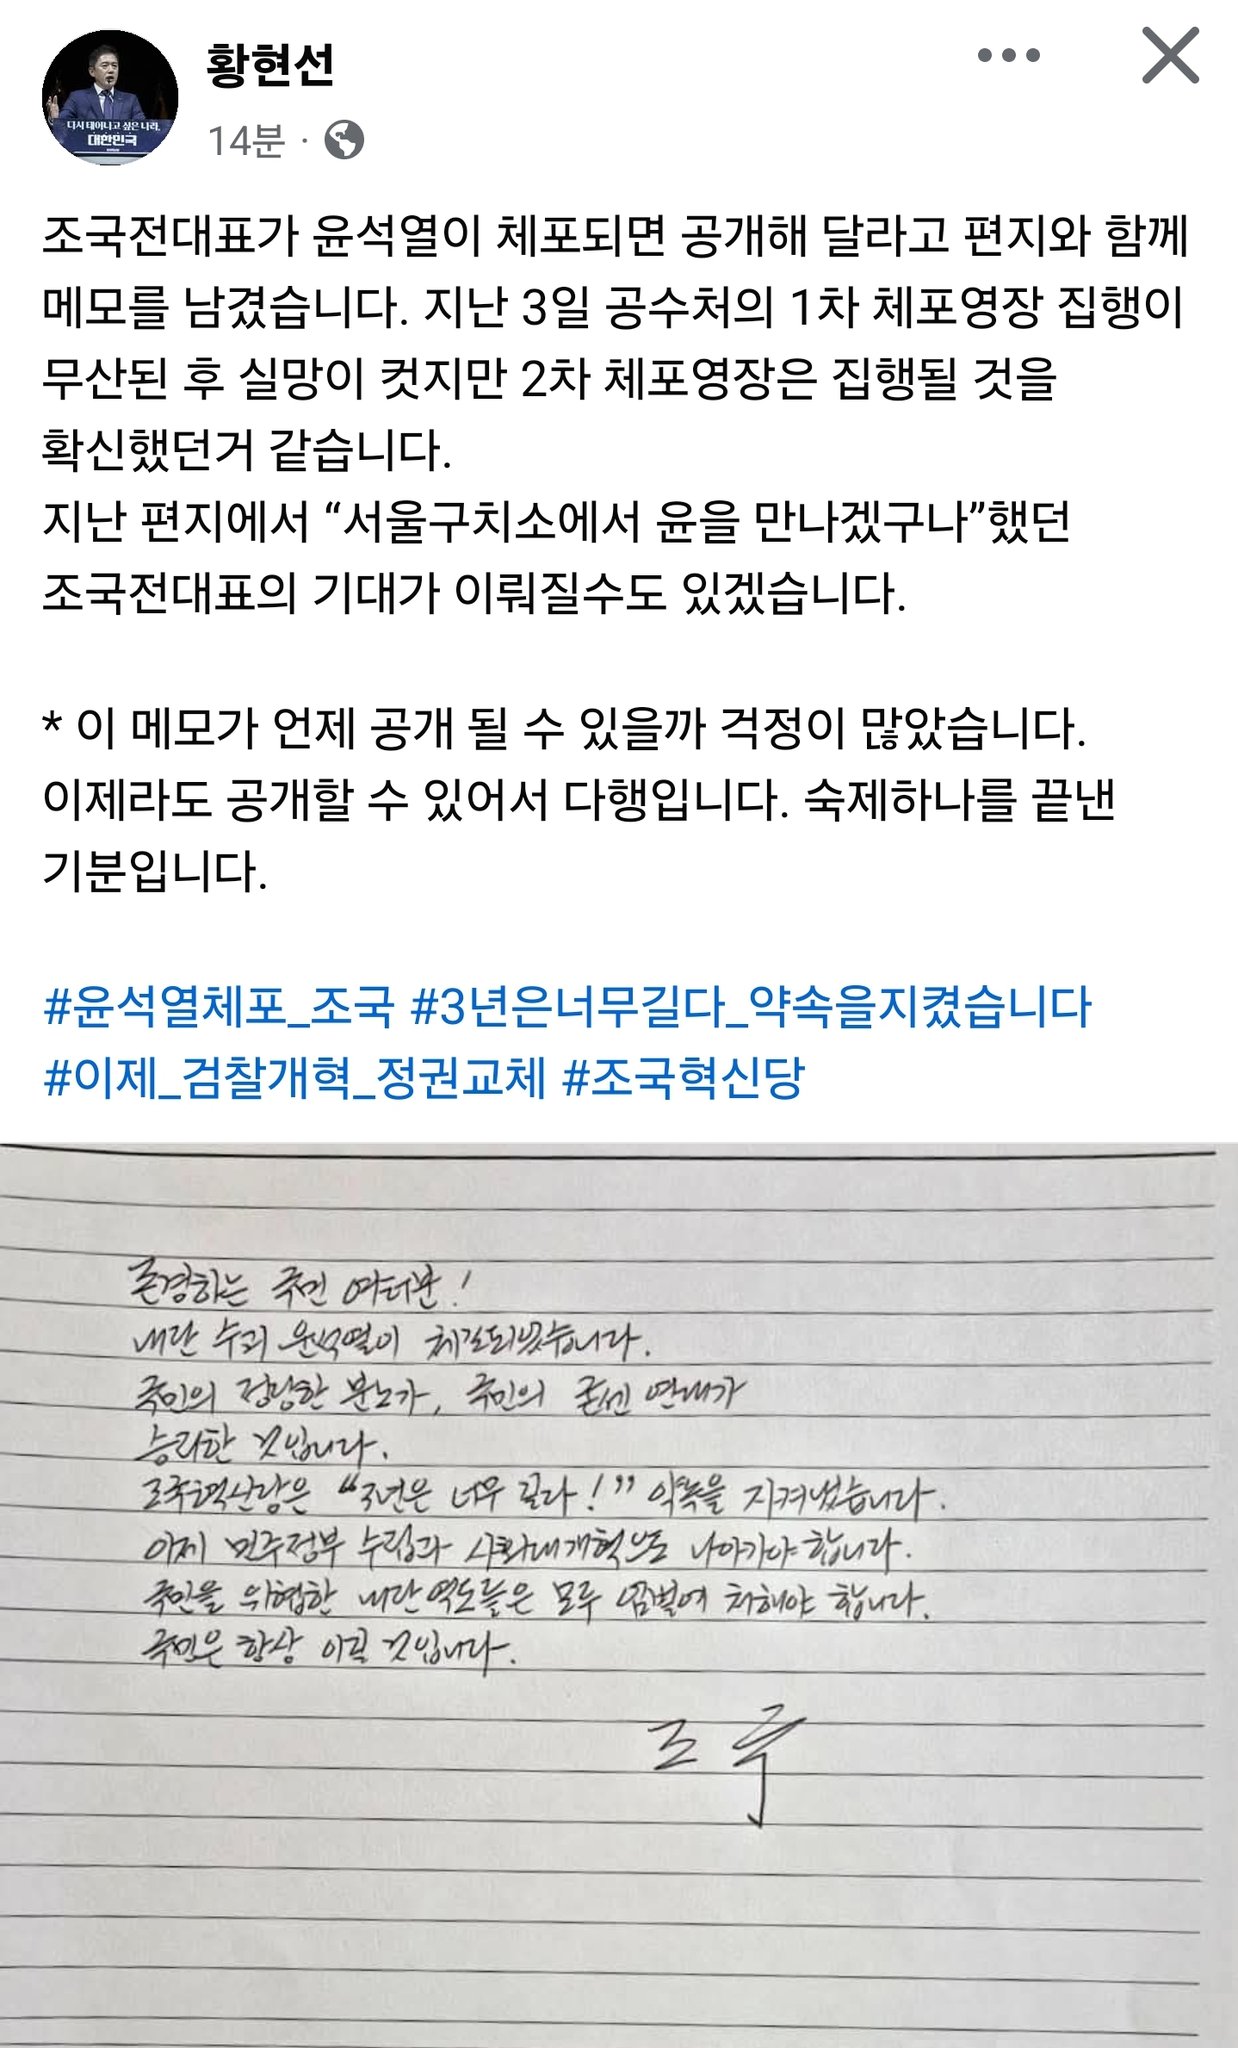 황현선
14분 ·
다시 태어나고 싶은 나라,
대한민국
조국전대표가 윤석열이 체포되면 공개해 달라고 편지와 함께
메모를 남겼습니다. 지난 3일 공수처의 1차 체포영장 집행이
무산된 후 실망이 컷지만 2차 체포영장은 집행될 것을
확신했던거 같습니다.
지난 편지에서 “서울구치소에서 윤을 만나겠구나”했던
조국전대표의 기대가 이뤄질수도 있겠습니다.
* 이 메모가 언제 공개 될 수 있을까 걱정이 많았습니다.
이제라도 공개할 수 있어서 다행입니다. 숙제하나를 끝낸
기분입니다.
#윤석열체포_조국 #3년은너무길다_약속을지켰습니다
#이제_검찰개혁_정권교체 #조국혁신당
존경하는 국민 여러분!
내란 수괴 윤석열이 체포되었습니다.
국민의 정당한 분노가, 국민의 굳센 연대가
승리한 것입니다.
조국혁신당은 “3년은 너무 길다!” 약속을 지켜냈습니다.
이제 민주정부 수립과 사회대개혁으로 나아가야 합니다.
국민을 위협한 내란 역도들은 모두 엄벌에 처해야 합니다.
국민은 항상 이길 것입니다.
조국